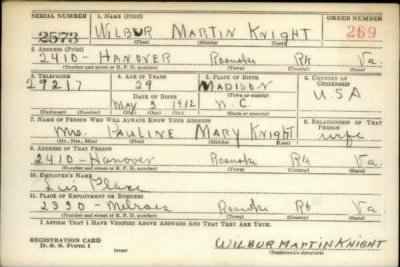 SERIAL NUMBER 1. NAME (Print) ORDER NUMBER
2573 WILBUR MARTIN KNIGHT 269
(First) (Middle) (Last)
2. ADDRESS (Print)
2410 - HANOVER Roanoke Rk Va.
(Number and street or R. F. D. number) (Town) (County) (State)
3. TELEPHONE 4. AGE IN YEARS 5. PLACE OF BIRTH 6. COUNTRY OF CITIZENSHIP
29217 29 MADISON U.S.A
DATE OF BIRTH (Town or county)
MAY 3 1912 N.C.
(Exchange) (Number) (Mo.) (Day) (Yr.) (State or country)
7. NAME OF PERSON WHO WILL ALWAYS KNOW YOUR ADDRESS 8. RELATIONSHIP OF THAT PERSON
Mrs. PAULINE MARY KNIGHT wife
(Mr., Mrs., Miss) (First) (Middle) (Last)
9. ADDRESS OF THAT PERSON
2410 - Hanover Roanoke Va.
(Number and street or R. F. D. number) (Town) (County) (State)
10. EMPLOYER'S NAME
11. PLACE OF EMPLOYMENT OR BUSINESS
2330 - Melrose Roanoke Va.
(Number and street or R. F. D. number) (Town) (County) (State)
I AFFIRM THAT I HAVE VERIFIED ABOVE ANSWERS AND THAT THEY ARE TRUE.
REGISTRATION CARD
D. S. S. Form 1 (over) WILBUR MARTIN KNIGHT
(Registrant's signature)